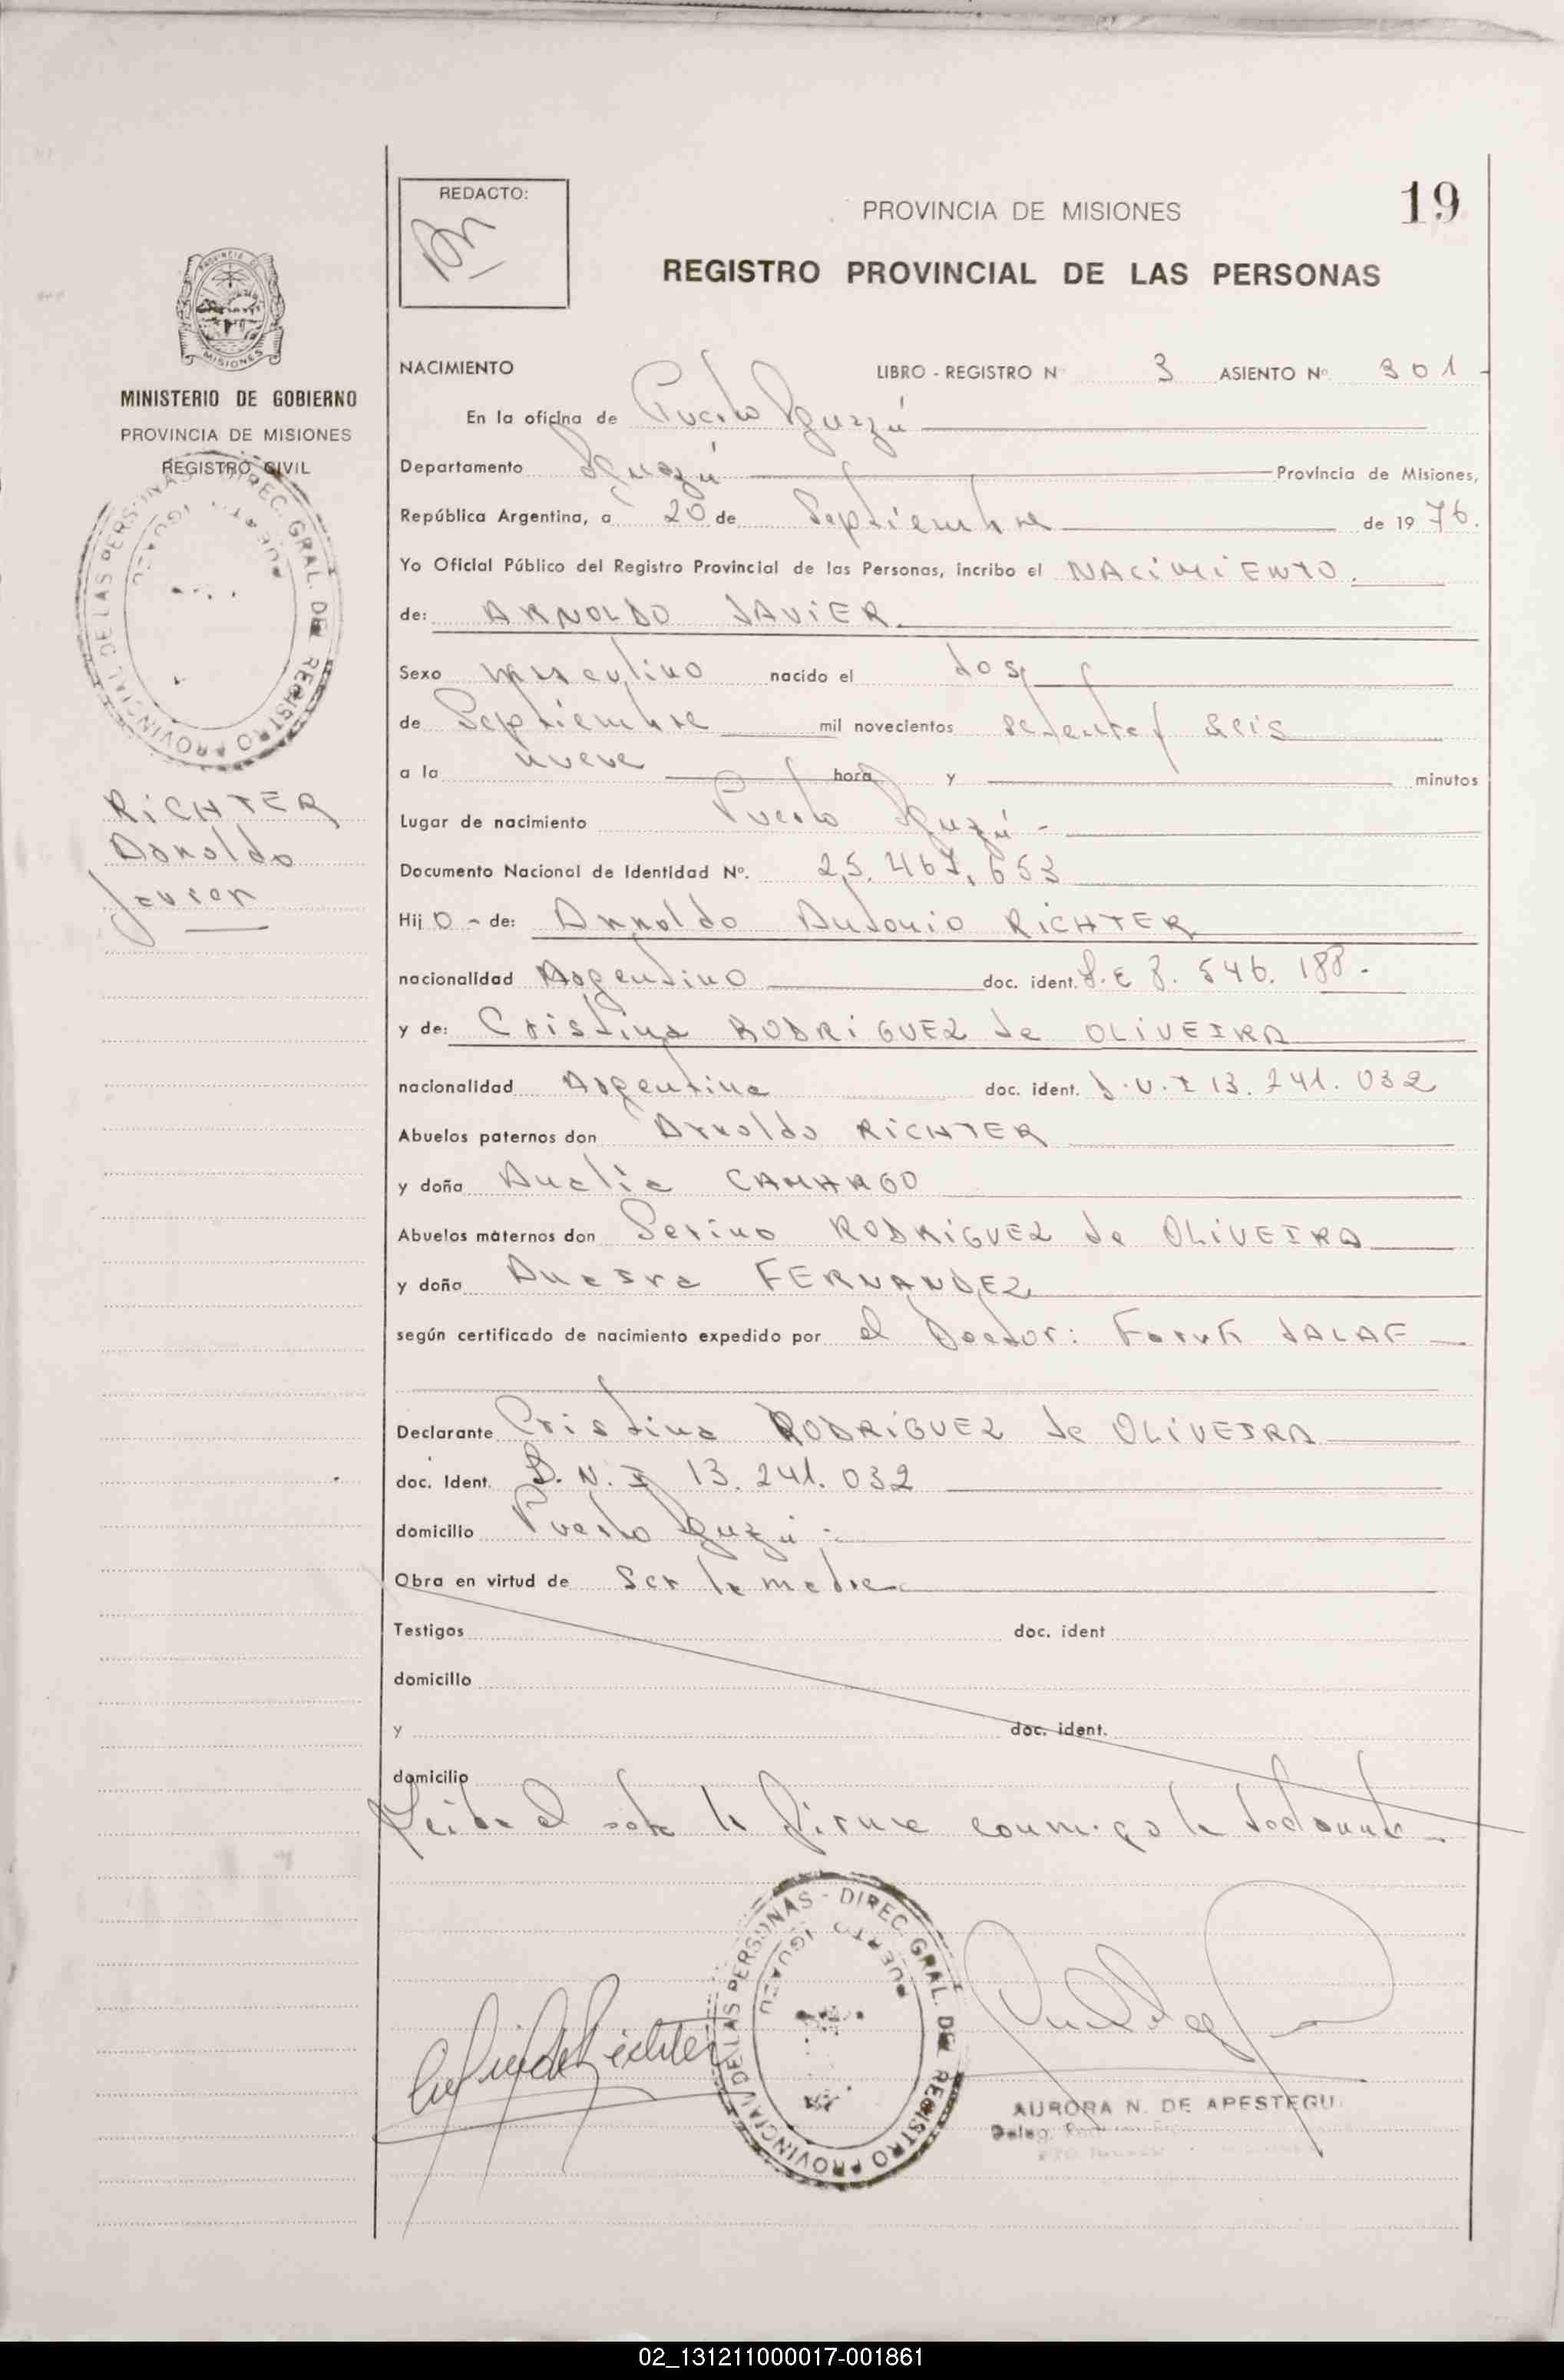 REDACTO:
PROVINCIA DE MISIONES
19
REGISTRO PROVINCIAL DE LAS PERSONAS
PROVINCIA DE
MISIONES
MINISTERIO DE GOBIERNO
PROVINCIA DE MISIONES
REGISTRO CIVIL
DIREC. GRAL. DEL REGISTRO PROVINCIAL DE LAS PERSONAS
PUERTO IGUAZU
RICHTER
Arnoldo
Javier
NACIMIENTO LIBRO - REGISTRO Nº 3 ASIENTO Nº 301 -
En la oficina de Puerto Iguazú
Departamento Iguazú Provincia de Misiones,
República Argentina, a 20 de Septiembre de 1976.
Yo Oficial Público del Registro Provincial de las Personas, incribo el NACIMIENTO.
de: ARNOLDO JAVIER.
Sexo masculino nacido el dos
de Septiembre mil novecientos setenta y seis
a la nueve hora y minutos
Lugar de nacimiento Puerto Iguazú -
Documento Nacional de Identidad Nº. 25.467.653
Hijo - de: Arnoldo Antonio RICHTER
nacionalidad Argentino doc. ident. L.E 8.546.188.
y de: Cristina RODRIGUEZ de OLIVEIRA
nacionalidad Argentina doc. ident. D.N.I 13.241.032
Abuelos paternos don Arnoldo RICHTER
y doña CAMARGO
Abuelos maternos don RODRIGUEZ de OLIVEIRA
y doña FERNANDEZ
según certificado de nacimiento expedido por el Doctor: Faruk JALAF
Declarante Cristina RODRIGUEZ de OLIVEIRA
doc. Ident. D.N.I 13.241.032
domicilio Puerto Iguazú -
Obra en virtud de ser la madre
Testigos doc. ident
domicilio
y doc. ident.
domicilio
Leida el acta la firma conmigo la declarante -
DIREC. GRAL. DEL REGISTRO PROVINCIAL DE LAS PERSONAS
PUERTO IGUAZU
AURORA N. DE APESTEGUI
02_131211000017-001861